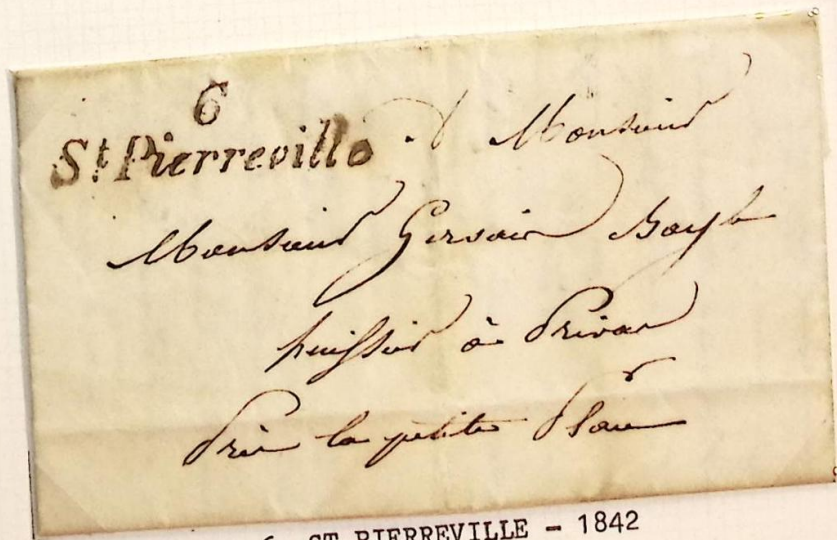 6
St Pierreville
à Monsieur
Monsieur Gervais Bayle
huissier à Privas
Prir la petite Place
6 ST PIERREVILLE - 1842